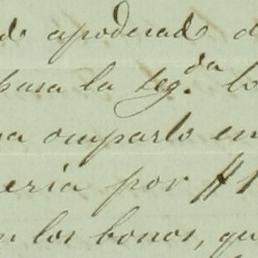 do apoderado d
para la seg.da lo
na omparlo en
ería por #1
n los bonos, qu